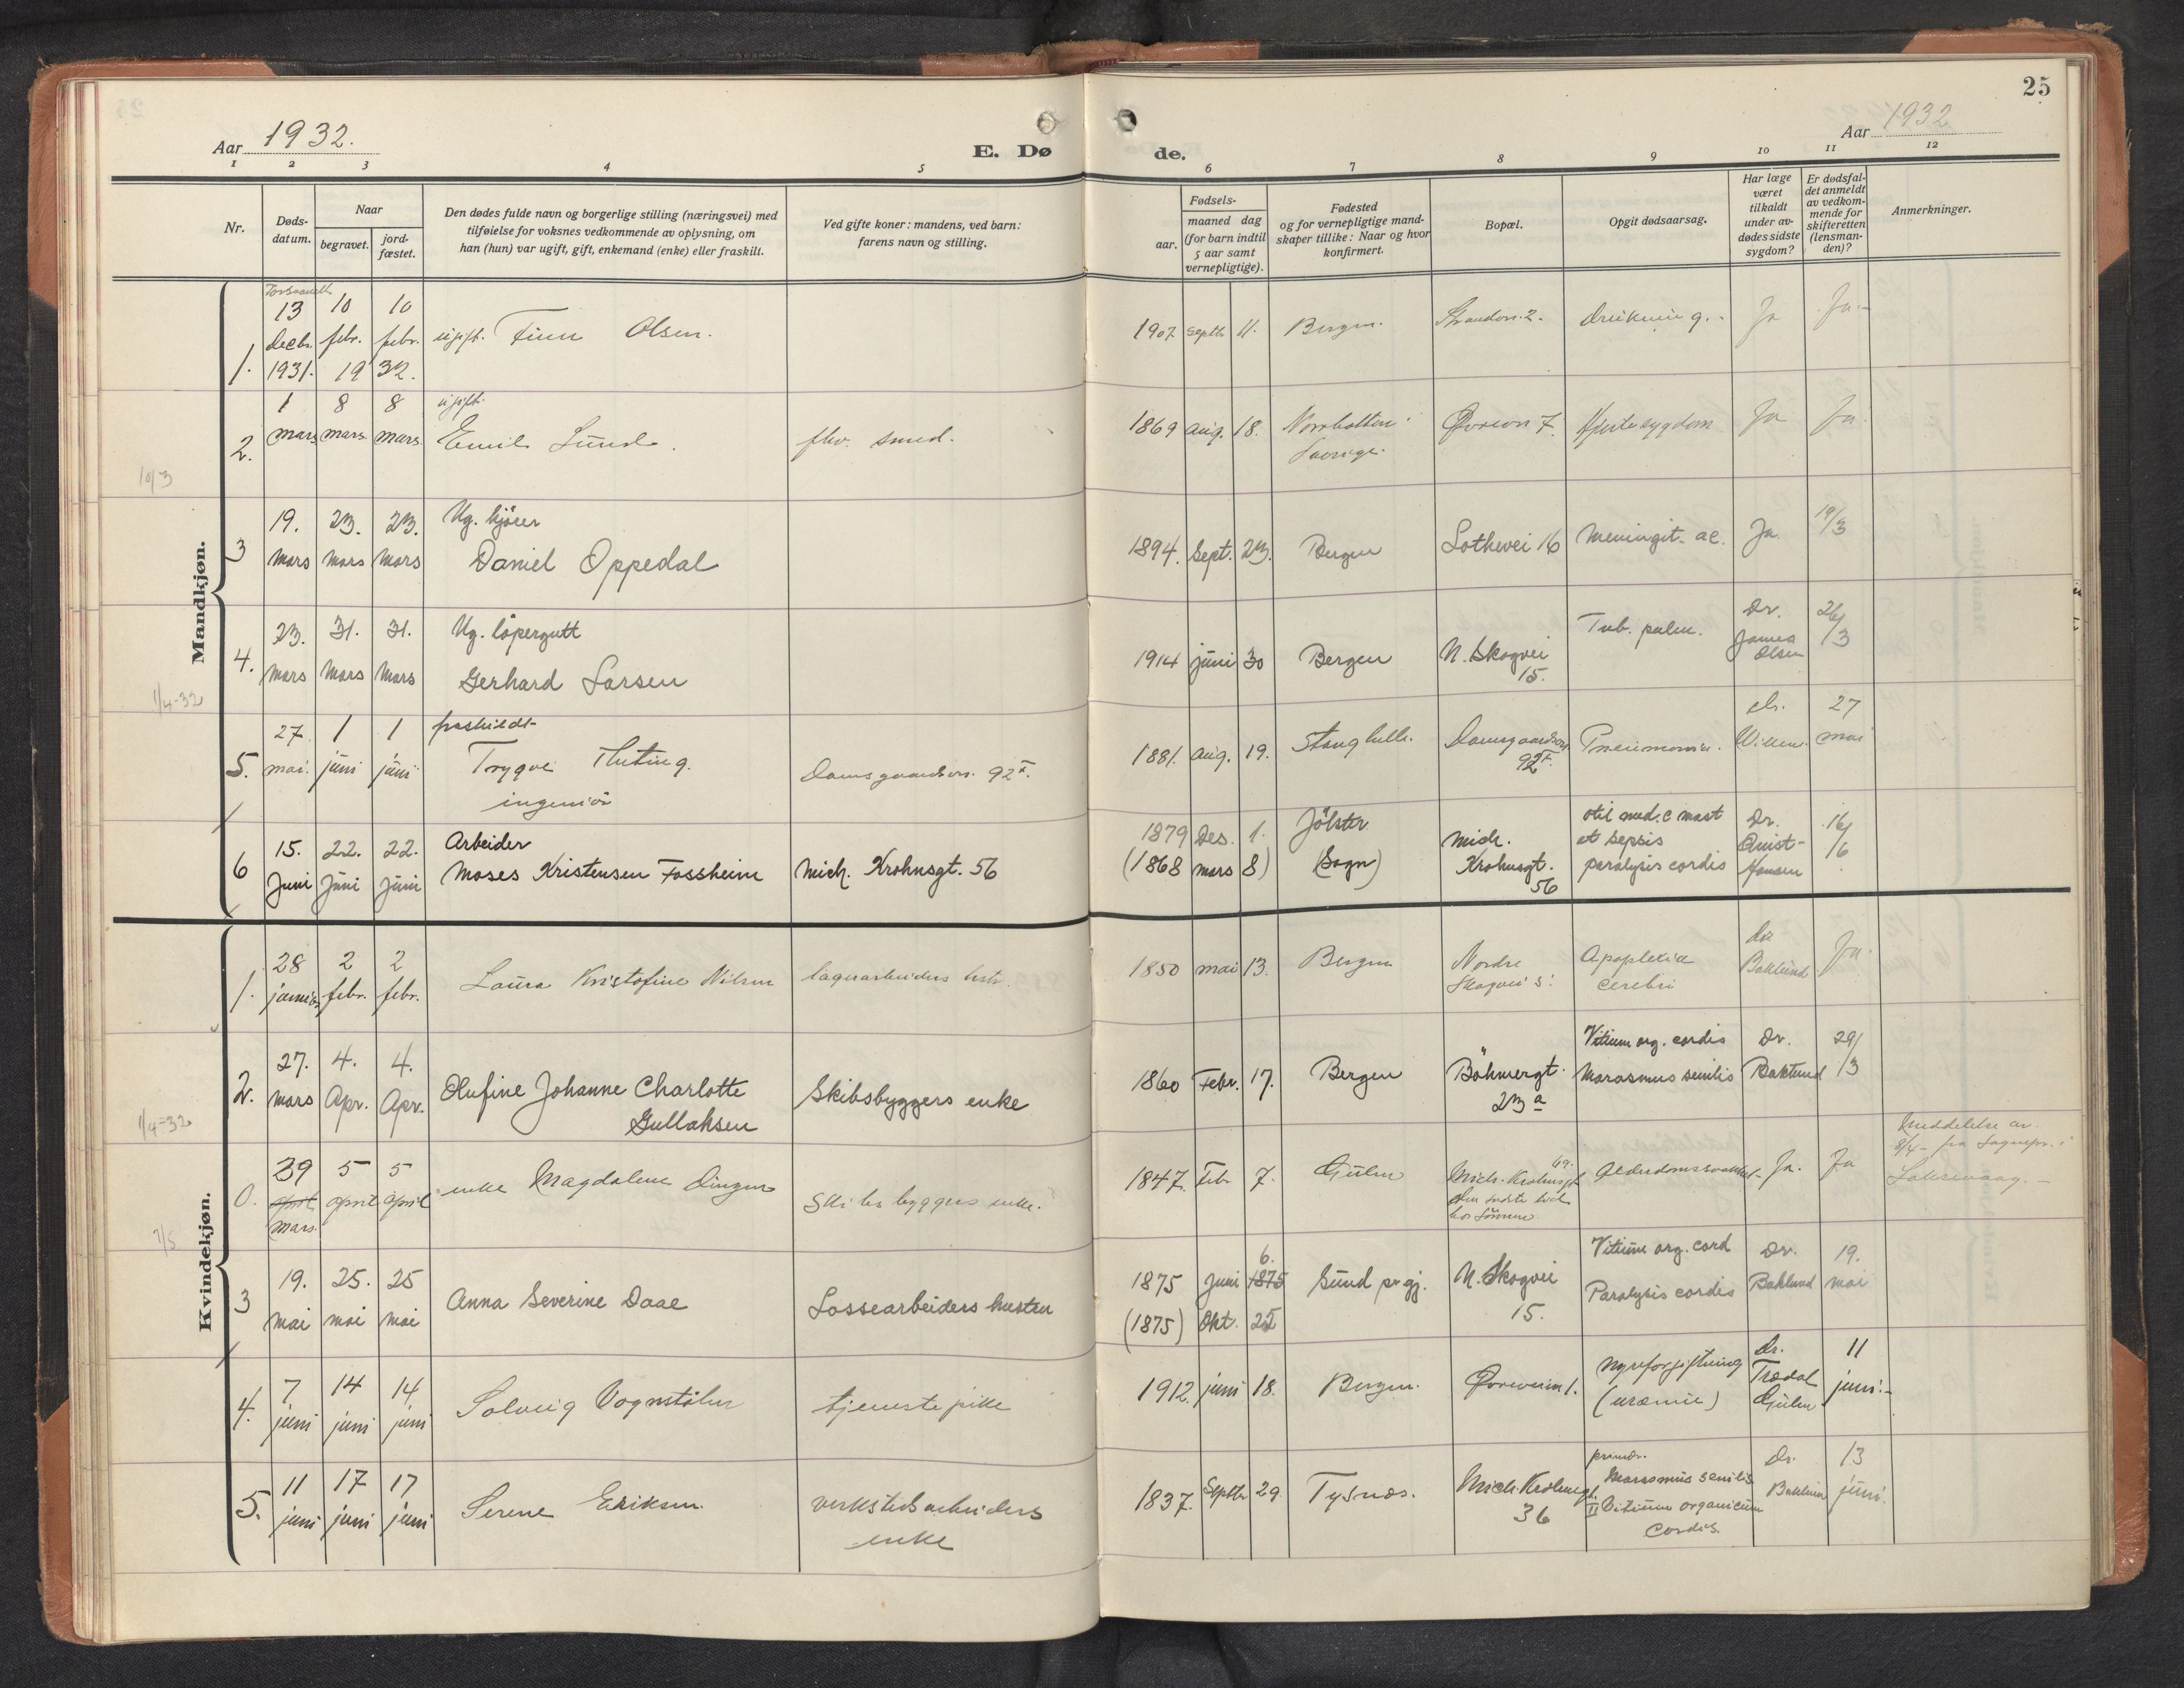 25
Aar 1932.
E. Dø
de.
Aar 1932
1 2 3 4 5 6 7 8 9 10 11 12
Nr.
Døds-
datum.
Naar
begravet.
jord-
fæstet.
Den dødes fulde navn og borgerlige stilling (næringsvei) med
tilføielse for voksnes vedkommende av oplysning, om
han (hun) var ugift, gift, enkemand (enke) eller fraskilt.
Ved gifte koner: mandens, ved barn:
farens navn og stilling.
Fødsels-
aar.
maaned dag
(for barn indtil
5 aar samt
vernepligtige).
Fødested
og for vernepligtige mand-
skaper tillike: Naar og hvor
konfirmert.
Bopæl.
Opgit dødsaarsag.
Har læge
været
tilkaldt
under av-
dødes sidste
sygdom?
Er dødsfal-
det anmeldt
av vedkom-
mende for
skifteretten
(lensman-
den)?
Anmerkninger.
Mandkjøn.
1. 13 decbr. 1931. 10 febr. 10 febr. 1932. ugift. Finn Olsen.
1907. Septb. 11. Bergen. Strandv. 2. Drukning. Ja Ja.
2. 1 mars 8 mars. 8 mars ugift.
Emil Lund. fhv. smed.
1869 aug. 18. Norrbotten Sverige. Øvrevn 7. Hjertesygdom Ja Ja.
10/3
3 19. mars 23. mars 23. mars Ug. kjører
Daniel Oppedal
1894. Sept. 23. Bergen Lothevei 16 Meningit. ac. Ja. 19/3
4. 23. mars 31. mars 31. mars Ug. løpergutt
Gerhard Larsen
1914 juni 30 Bergen N. Skogvei 15. Tub. pulm. Dr. James Olsen 26/3
1/4-32
5. 27 mai. 1 juni 1 juni fraskildt
Trygve
ingeniør
Damsgaardsv. 92 I.
1881. aug. 19. Stanghelle. Damsgaardsv 92 I. Pneumonia. dr. Willen. 27 mai
6 15. Juni 22. Juni 22. Juni Arbeider
Moses Kristensen Fossheim Mich. Krohnsgt. 56
1879 Des. 1. Jølster
(1868 mars 8) (Sogn)
Mich. Krohnsgt. 56
otit med. c mast
et sepsis
paralysis cordis
Dr. Quist-Hansen 16/6
Kvindekjøn.
1. 28 januar 2 febr. 2 febr. Laura Kristofine Nilsen lagerarbeiders hstr.
1850 mai 13. Bergen Nordre Skogvei 5. Apoplexia cerebri dr Baklund Ja.
2. 27. mars 4. Apr. 4. Apr. Olufine Johanne Charlotte
Gullaksen Skibsbyggers enke
1860 Febr. 17. Bergen Böhmergt. 23 a
Vitium org. cordis
Marasmus senilis
Dr. Baklund 29/3
1/4-32
0. 29 april mars. 5 april 5 april enke Magdalene Skibsbyggers enke.
1847. Feb. 7. Gulen Mich. Krohnsgt 69. Alderdomssvakhet Ja. Ja
Meddelelse av
8/4 - fra Sognepr. i
Laksevaag.
3 19. mai 25. mai 25 mai Anna Severine Daae Lossearbeiders hustru
1875 Juni 1875 6. Sund pr gj. N. Skogvei 15.
(1875) Okt. 25
Vitium org. cord
Paralysis cordis
Dr. Baklund 19. mai
4. 7 juni 14 juni 14 juni Solveig Vognstølen tjenestepike
1912. juni 18. Bergen. Øvreveien 1. Nyreforgiftning
(uræmie)
Dr. Trædal Gulen 11 juni.
5. 11 juni 17 juni 17 juni Serene Eriksen verkstedsarbeiders
enke
1837. Septbr 29. Tysnæs. Mich. Krohnsgt. 36
Marasmus senilis
II Vitium organicum
cordis.
Dr. Baklund 13 juni.